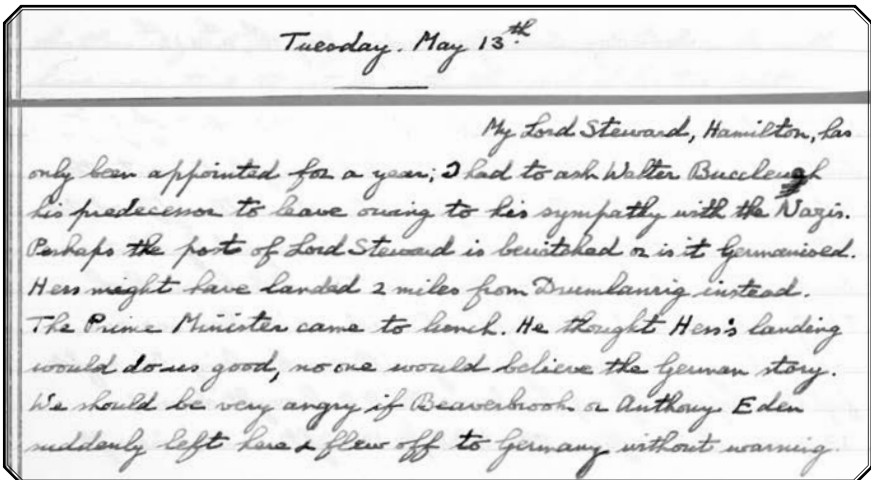 Tuesday. May 13th.
My Lord Steward, Hamilton, has
only been appointed for a year; I had to ask Walter Buccleugh
his predecessor to leave owing to his sympathy with the Nazis.
Perhaps the post of Lord Steward is bewitched or is it Germanised.
Hess might have landed 2 miles from Drumlanrig instead.
The Prime Minister came to lunch. He thought Hess's landing
would do us good, no one would believe the German story.
We should be very angry if Beaverbrook or Anthony Eden
suddenly left here & flew off to Germany without warning.